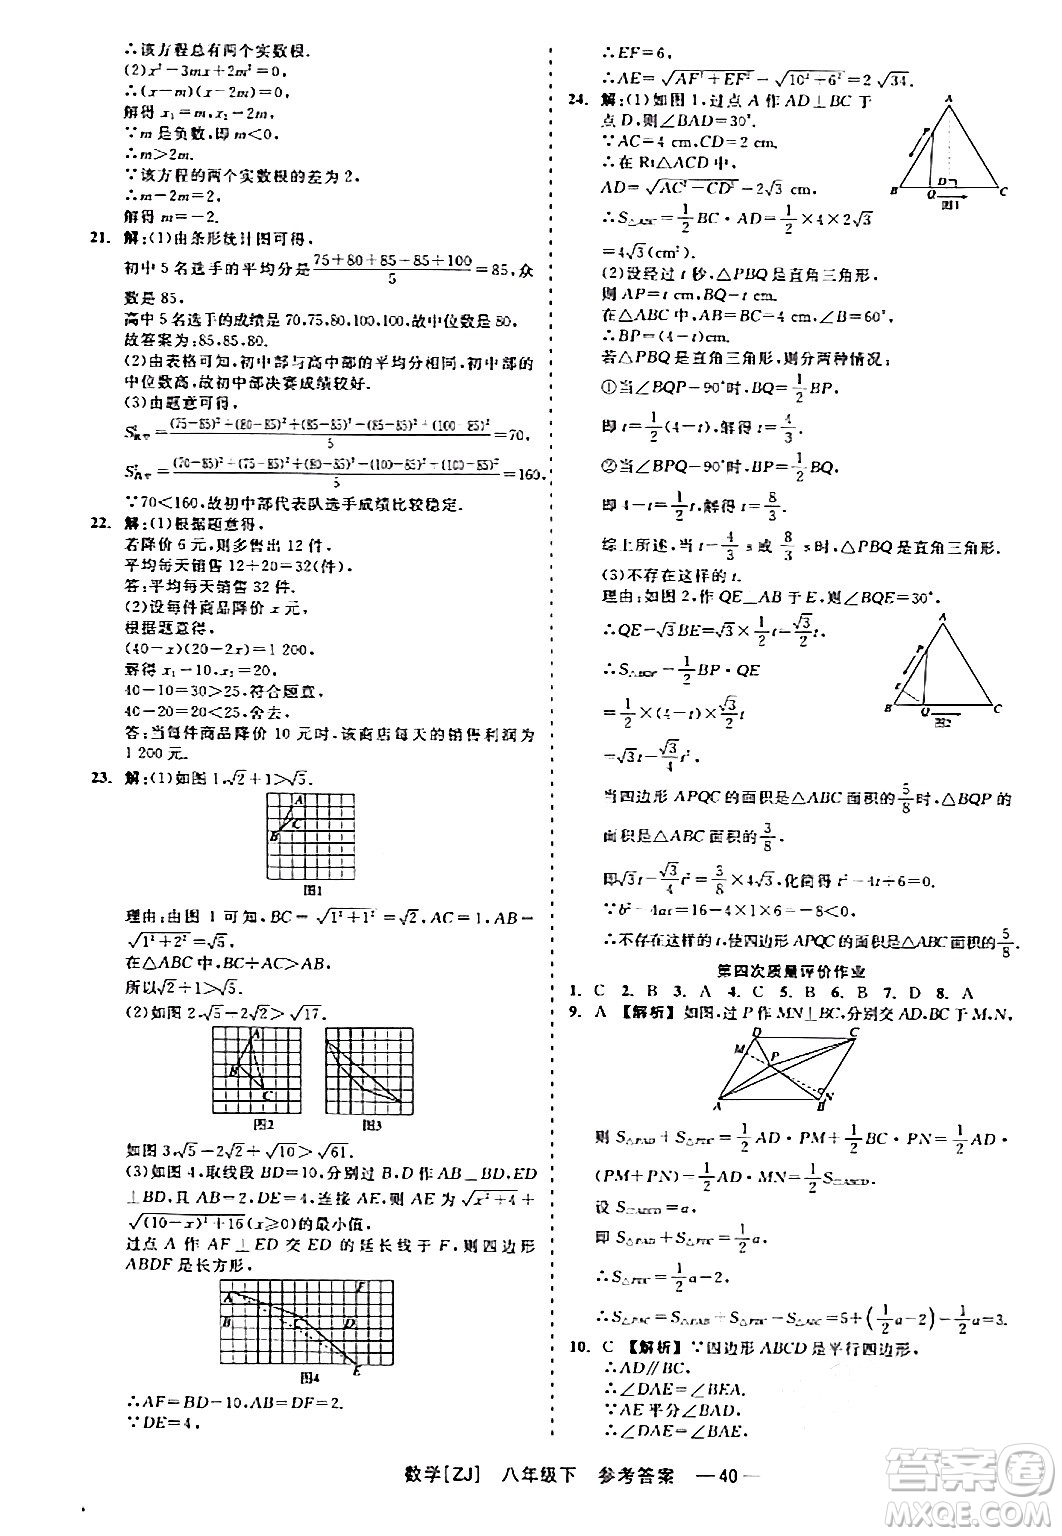 ∴该方程总有两个实数根.
(2)x²-3mx+2m²=0,
∴(x-m)(x-2m)=0,
解得 x₁=m,x₂=2m.
∵m 是负数,即 m<0,
∴m>2m.
∵该方程的两个实数根的差为 2,
∴m-2m=2,
解得 m=-2.
21. 解:(1)由条形统计图可得,
初中 5 名选手的平均分是(75+80+85+85+100)/5=85,众
数是 85,
高中 5 名选手的成绩是 70,75,80,100,100,故中位数是 80,
故答案为:85,85,80.
(2)由表格可知,初中部与高中部的平均分相同,初中部的
中位数高,故初中部决赛成绩较好.
(3)由题意可得,
=((75-85)²+(80-85)²+(85-85)²+(85-85)²+(100-85)²)/5=70,
=((70-85)²+(75-85)²+(80-85)²+(100-85)²+(100-85)²)/5=160,
∵70<160,故初中部代表队选手成绩比较稳定.
22. 解:(1)根据题意得,
若降价 6 元,则多售出 12 件,
平均每天销售 12+20=32(件).
答:平均每天销售 32 件.
(2)设每件商品降价 x 元,
根据题意得,
(40-x)(20+2x)=1 200,
解得 x₁=10,x₂=20,
40-10=30>25,符合题意,
40-20=20<25,舍去.
答:当每件商品降价 10 元时,该商店每天的销售利润为
1 200 元.
23. 解:(1)如图 1,√2+1>√5.
A
B
C
图1
理由:由图 1 可知,BC=√(1²+1²)=√2,AC=1,AB=
√(1²+2²)=√5,
在△ABC 中,BC+AC>AB,
所以√2+1>√5.
(2)如图 2,√5+2√2>√17.
A
B
C
图2 图3
如图 3,√5+2√2+√10>√61.
(3)如图 4,取线段 BD=10,分别过 B,D 作 AB⊥BD,ED
⊥BD,且 AB=2,DE=4,连接 AE,则 AE 为√(x²+4)+
√((10-x)²+16)(x≥0)的最小值,
过点 A 作 AF⊥ED 交 ED 的延长线于 F,则四边形
ABDF 是长方形,
A F
B C D
E
图4
∴AF=BD=10,AB=DF=2,
∵DE=4,
∴EF=6,
∴AE=√(AF²+EF²)=√(10²+6²)=2√34.
24. 解:(1)如图 1,过点 A 作 AD⊥BC 于
点 D,则∠BAD=30°,
∵AC=4 cm,CD=2 cm,
∴在 Rt△ACD 中,
AD=√(AC²-CD²)=2√3 cm,
∴S△ABC=1/2BC·AD=1/2×4×2√3
=4√3(cm²).
A
P
B Q D C
图1
(2)设经过 t 秒,△PBQ 是直角三角形,
则 AP=t cm,BQ=t cm,
在△ABC 中,AB=BC=4 cm,∠B=60°,
∴BP=(4-t) cm,
若△PBQ 是直角三角形,则分两种情况:
①当∠BQP=90°时,BQ=1/2BP,
即 t=1/2(4-t),t=4/3,
②当∠BPQ=90°时,BP=1/2BQ,
即 4-t=1/2t,解得 t=8/3,
综上所述,当 t=4/3 s或 8/3 s时,△PBQ 是直角三角形.
(3)不存在这样的 t.
理由:如图 2,作 QE⊥AB 于 E,则∠BQE=30°,
∴QE=√3BE=√3×1/2t=√3/2t,
∴S△BQP=1/2BP·QE
=1/2×(4-t)×√3/2t
=√3t-√3/4t²,
A
P
E
B Q C
图2
当四边形 APQC 的面积是△ABC 面积的5/8时,△BQP 的
面积是△ABC 面积的3/8,
即√3t-√3/4t²=3/8×4√3,化简得 t²-4t+6=0,
∵b²-4ac=16-4×1×6=-8<0,
∴不存在这样的 t,使四边形 APQC 的面积是△ABC 面积的5/8.
第四次质量评价作业
1. C 2. B 3. A 4. C 5. C 6. B 7. D 8. A
9. A 【解析】如图,过 P 作 MN⊥BC,分别交 AD,BC 于 M,N,
D C
M P
A B N
则 S△PAD+S△PBC=1/2AD·PM+1/2BC·PN=1/2AD·
(PM+PN)=1/2AD·MN=1/2S▱ABCD,
设 S▱ABCD=a,
即 S△PAD+S△PBC=1/2a,
∴S△PBC=1/2a-2,
∴S△PAC=S△PAB+S△PBC-S△ABC=5+(1/2a-2)-1/2a=3.
10. C 【解析】∵四边形 ABCD 是平行四边形,
∴AD∥BC,
∴∠DAE=∠BEA,
∵AE 平分∠BAD,
∴∠DAE=∠BAE,
数学[ZJ] 八年级下 参考答案 —40—
答案圈
MXQE.COM